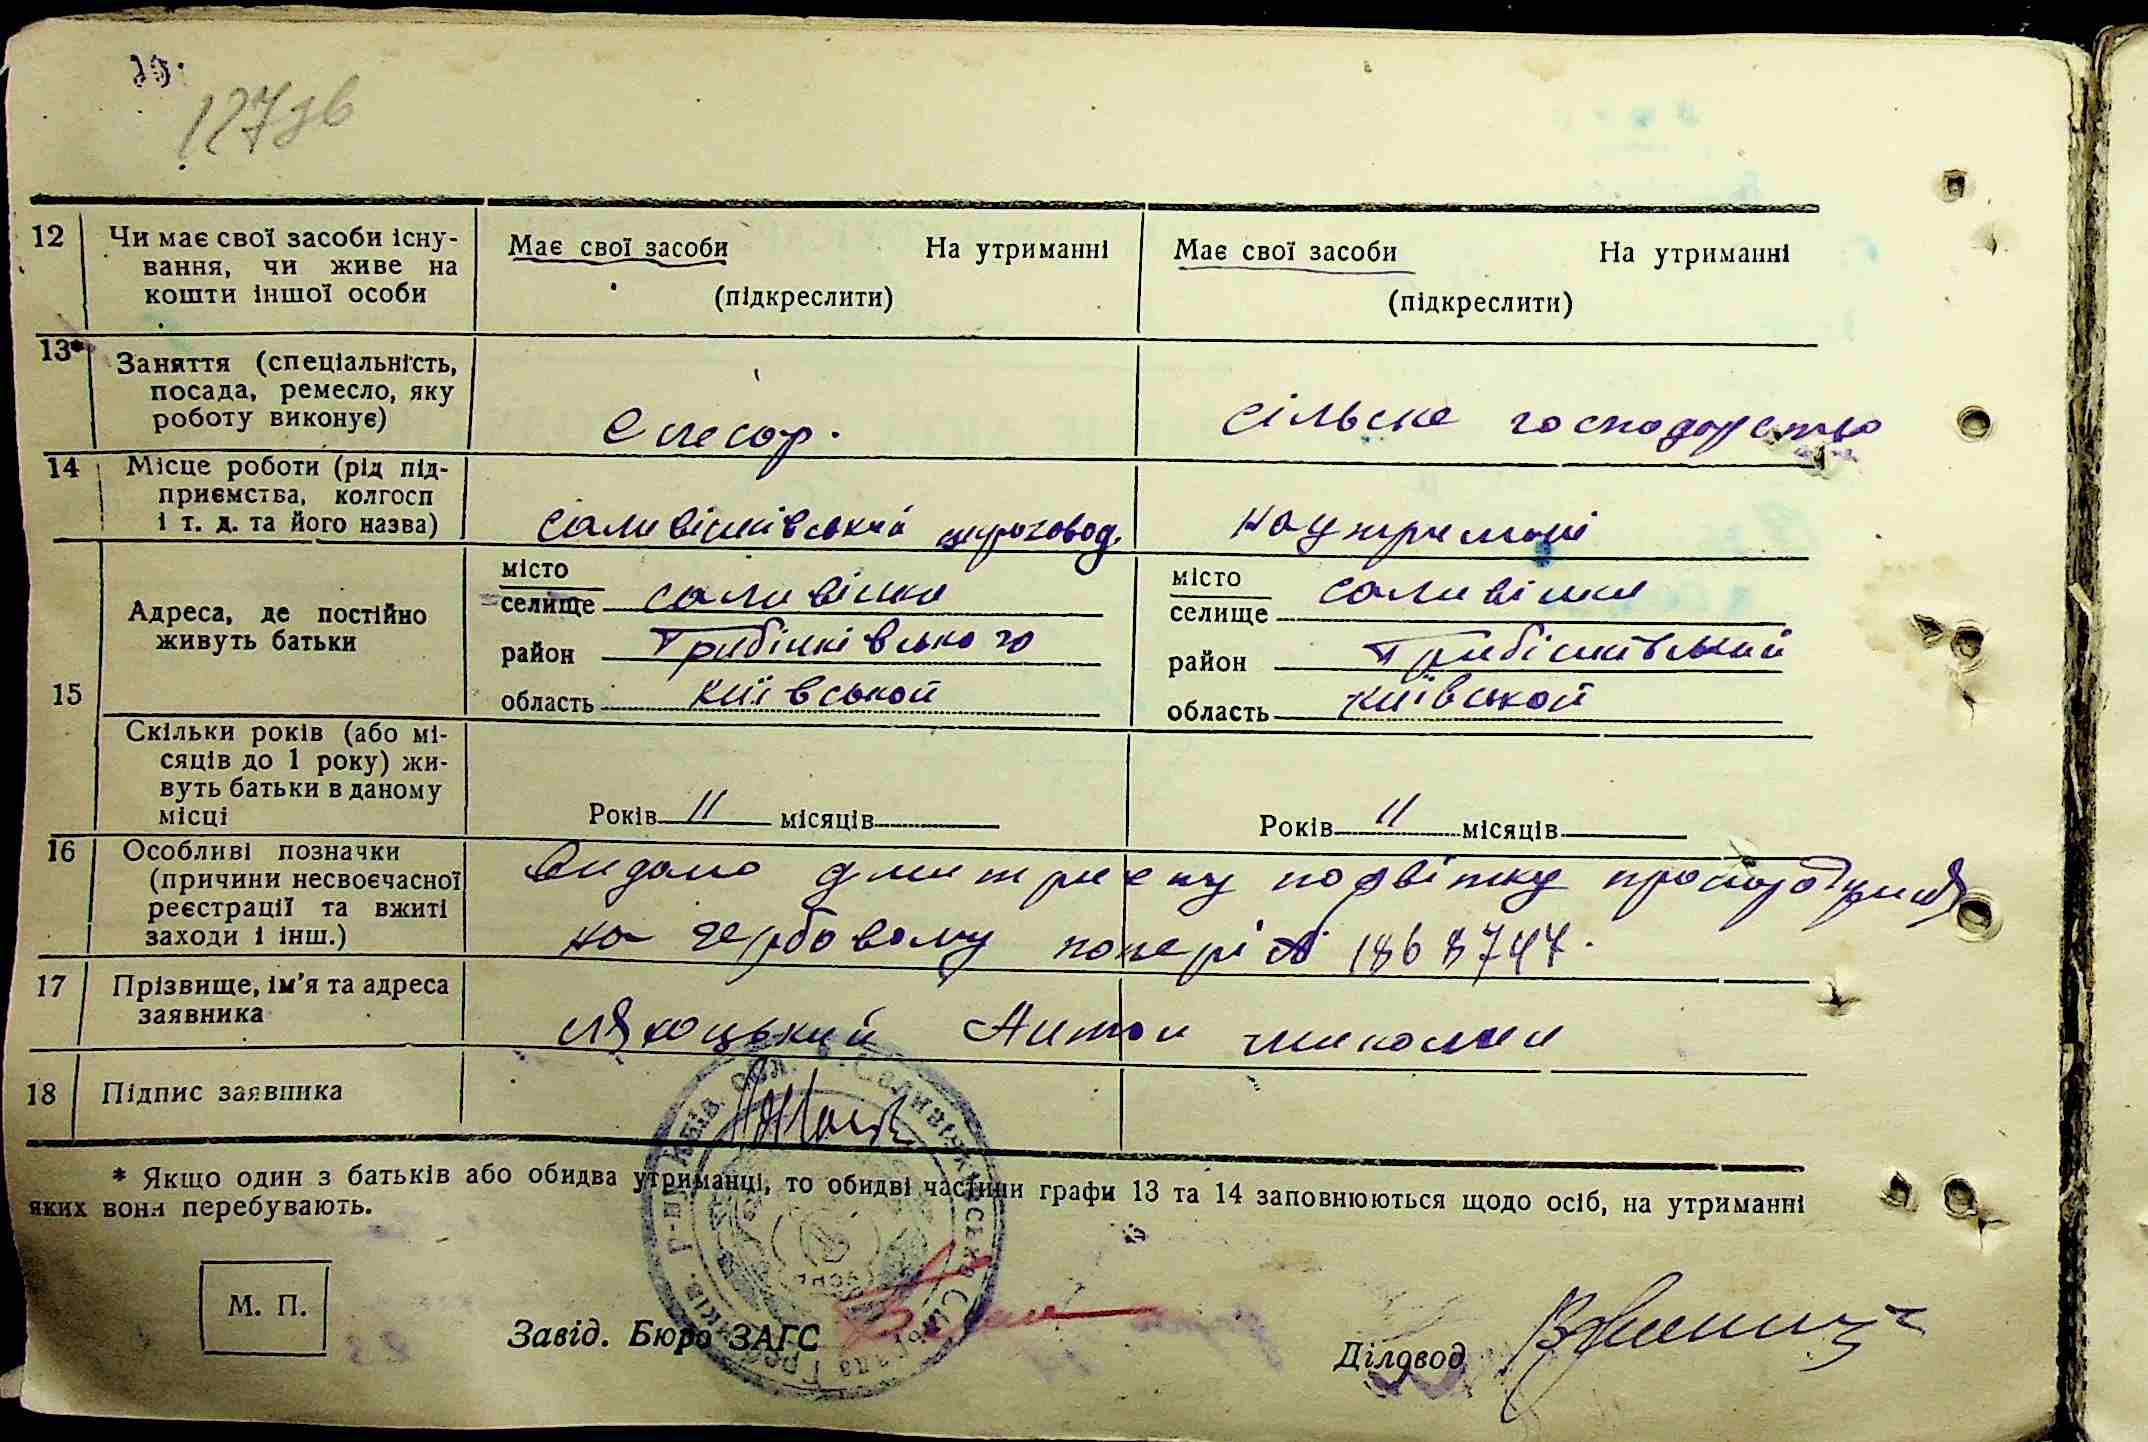 127зв
12 Чи має свої засоби існу-
вання, чи живе на
кошти іншої особи
Має свої засоби На утриманні
(підкреслити)
Має свої засоби На утриманні
(підкреслити)
13* Заняття (спеціальність,
посада, ремесло, яку
роботу виконує)
Слесар.
сільске господарство
14 Місце роботи (рід під-
приємства, колгосп
і т. д. та його назва)
саливінківський цукрозавод.
на утримані
15 Адреса, де постійно
живуть батьки
місто
селище саливінки
район Грибінківського
область київської
місто
селище саливінки
район Грибінківський
область київської
Скільки років (або мі-
сяців до 1 року) жи-
вуть батьки в даному
місці
Років 11 місяців
Років 11 місяців
16 Особливі позначки
(причини несвоєчасної
реєстрації та вжиті
заходи і інш.)
Видано
на гербовому папері № 1868747.
17 Прізвище, ім'я та адреса
заявника
Антон
18 Підпис заявника
* Якщо один з батьків або обидва утриманці, то обидві частини графи 13 та 14 заповнюються щодо осіб, на утриманні
яких вони перебувають.
М. П.
Завід. Бюро ЗАГС
Діловод